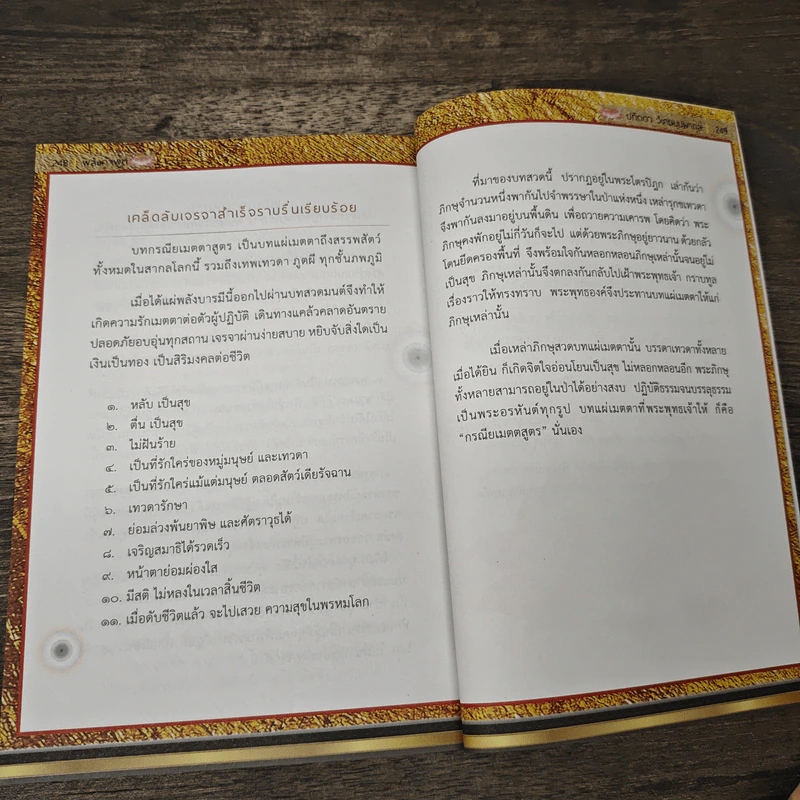 248
เคล็ดลับเจรจาสำเร็จราบรื่นเรียบร้อย
บทกรณียเมตตาสูตร เป็นบทแผ่เมตตาถึงสรรพสัตว์
ทั้งหมดในสากลโลกนี้ รวมถึงเทพเทวดา ภูตผี ทุกชั้นภพภูมิ
เมื่อได้แผ่พลังบารมีนี้ออกไปผ่านบทสวดมนต์จึงทำให้
เกิดความรักเมตตาต่อตัวผู้ปฏิบัติ เดินทางแคล้วคลาดอันตราย
ปลอดภัยอบอุ่นทุกสถาน เจรจาผ่านง่ายสบาย หยิบจับสิ่งใดเป็น
เงินเป็นทอง เป็นสิริมงคลต่อชีวิต
๑. หลับ เป็นสุข
๒. ตื่น เป็นสุข
๓. ไม่ฝันร้าย
๔. เป็นที่รักใคร่ของหมู่มนุษย์ และเทวดา
๕. เป็นที่รักใคร่แม้แต่มนุษย์ ตลอดสัตว์เดียรัจฉาน
๖. เทวดารักษา
๗. ย่อมล่วงพ้นยาพิษ และศัตราวุธได้
๘. เจริญสมาธิได้รวดเร็ว
๙. หน้าตาย่อมผ่องใส
๑๐. มีสติ ไม่หลงในเวลาสิ้นชีวิต
๑๑. เมื่อดับชีวิตแล้ว จะไปเสวย ความสุขในพรหมโลก
249
ที่มาของบทสวดนี้ ปรากฏอยู่ในพระไตรปิฎก เล่ากันว่า
ภิกษุจำนวนหนึ่งพากันไปจำพรรษาในป่าแห่งหนึ่ง เหล่ารุกขเทวดา
จึงพากันลงมาอยู่บนพื้นดิน เพื่อถวายความเคารพ โดยคิดว่า พระ
ภิกษุคงพักอยู่ไม่กี่วันก็จะไป แต่ด้วยพระภิกษุอยู่ยาวนาน ด้วยกลัว
โดนยึดครองพื้นที่ จึงพร้อมใจกันหลอกหลอนภิกษุเหล่านั้นจนอยู่ไม่
เป็นสุข ภิกษุเหล่านั้นจึงตกลงกันกลับไปเฝ้าพระพุทธเจ้า กราบทูล
เรื่องราวให้ทรงทราบ พระพุทธองค์จึงประทานบทแผ่เมตตาให้แก่
ภิกษุเหล่านั้น
เมื่อเหล่าภิกษุสวดบทแผ่เมตตานั้น บรรดาเทวดาทั้งหลาย
เมื่อได้ยิน ก็เกิดจิตใจอ่อนโยนเป็นสุข ไม่หลอกหลอนอีก พระภิกษุ
ทั้งหลายสามารถอยู่ในป่าได้อย่างสงบ ปฏิบัติธรรมจนบรรลุธรรม
เป็นพระอรหันต์ทุกรูป บทแผ่เมตตาที่พระพุทธเจ้าให้ ก็คือ
"กรณียเมตตสูตร" นั่นเอง